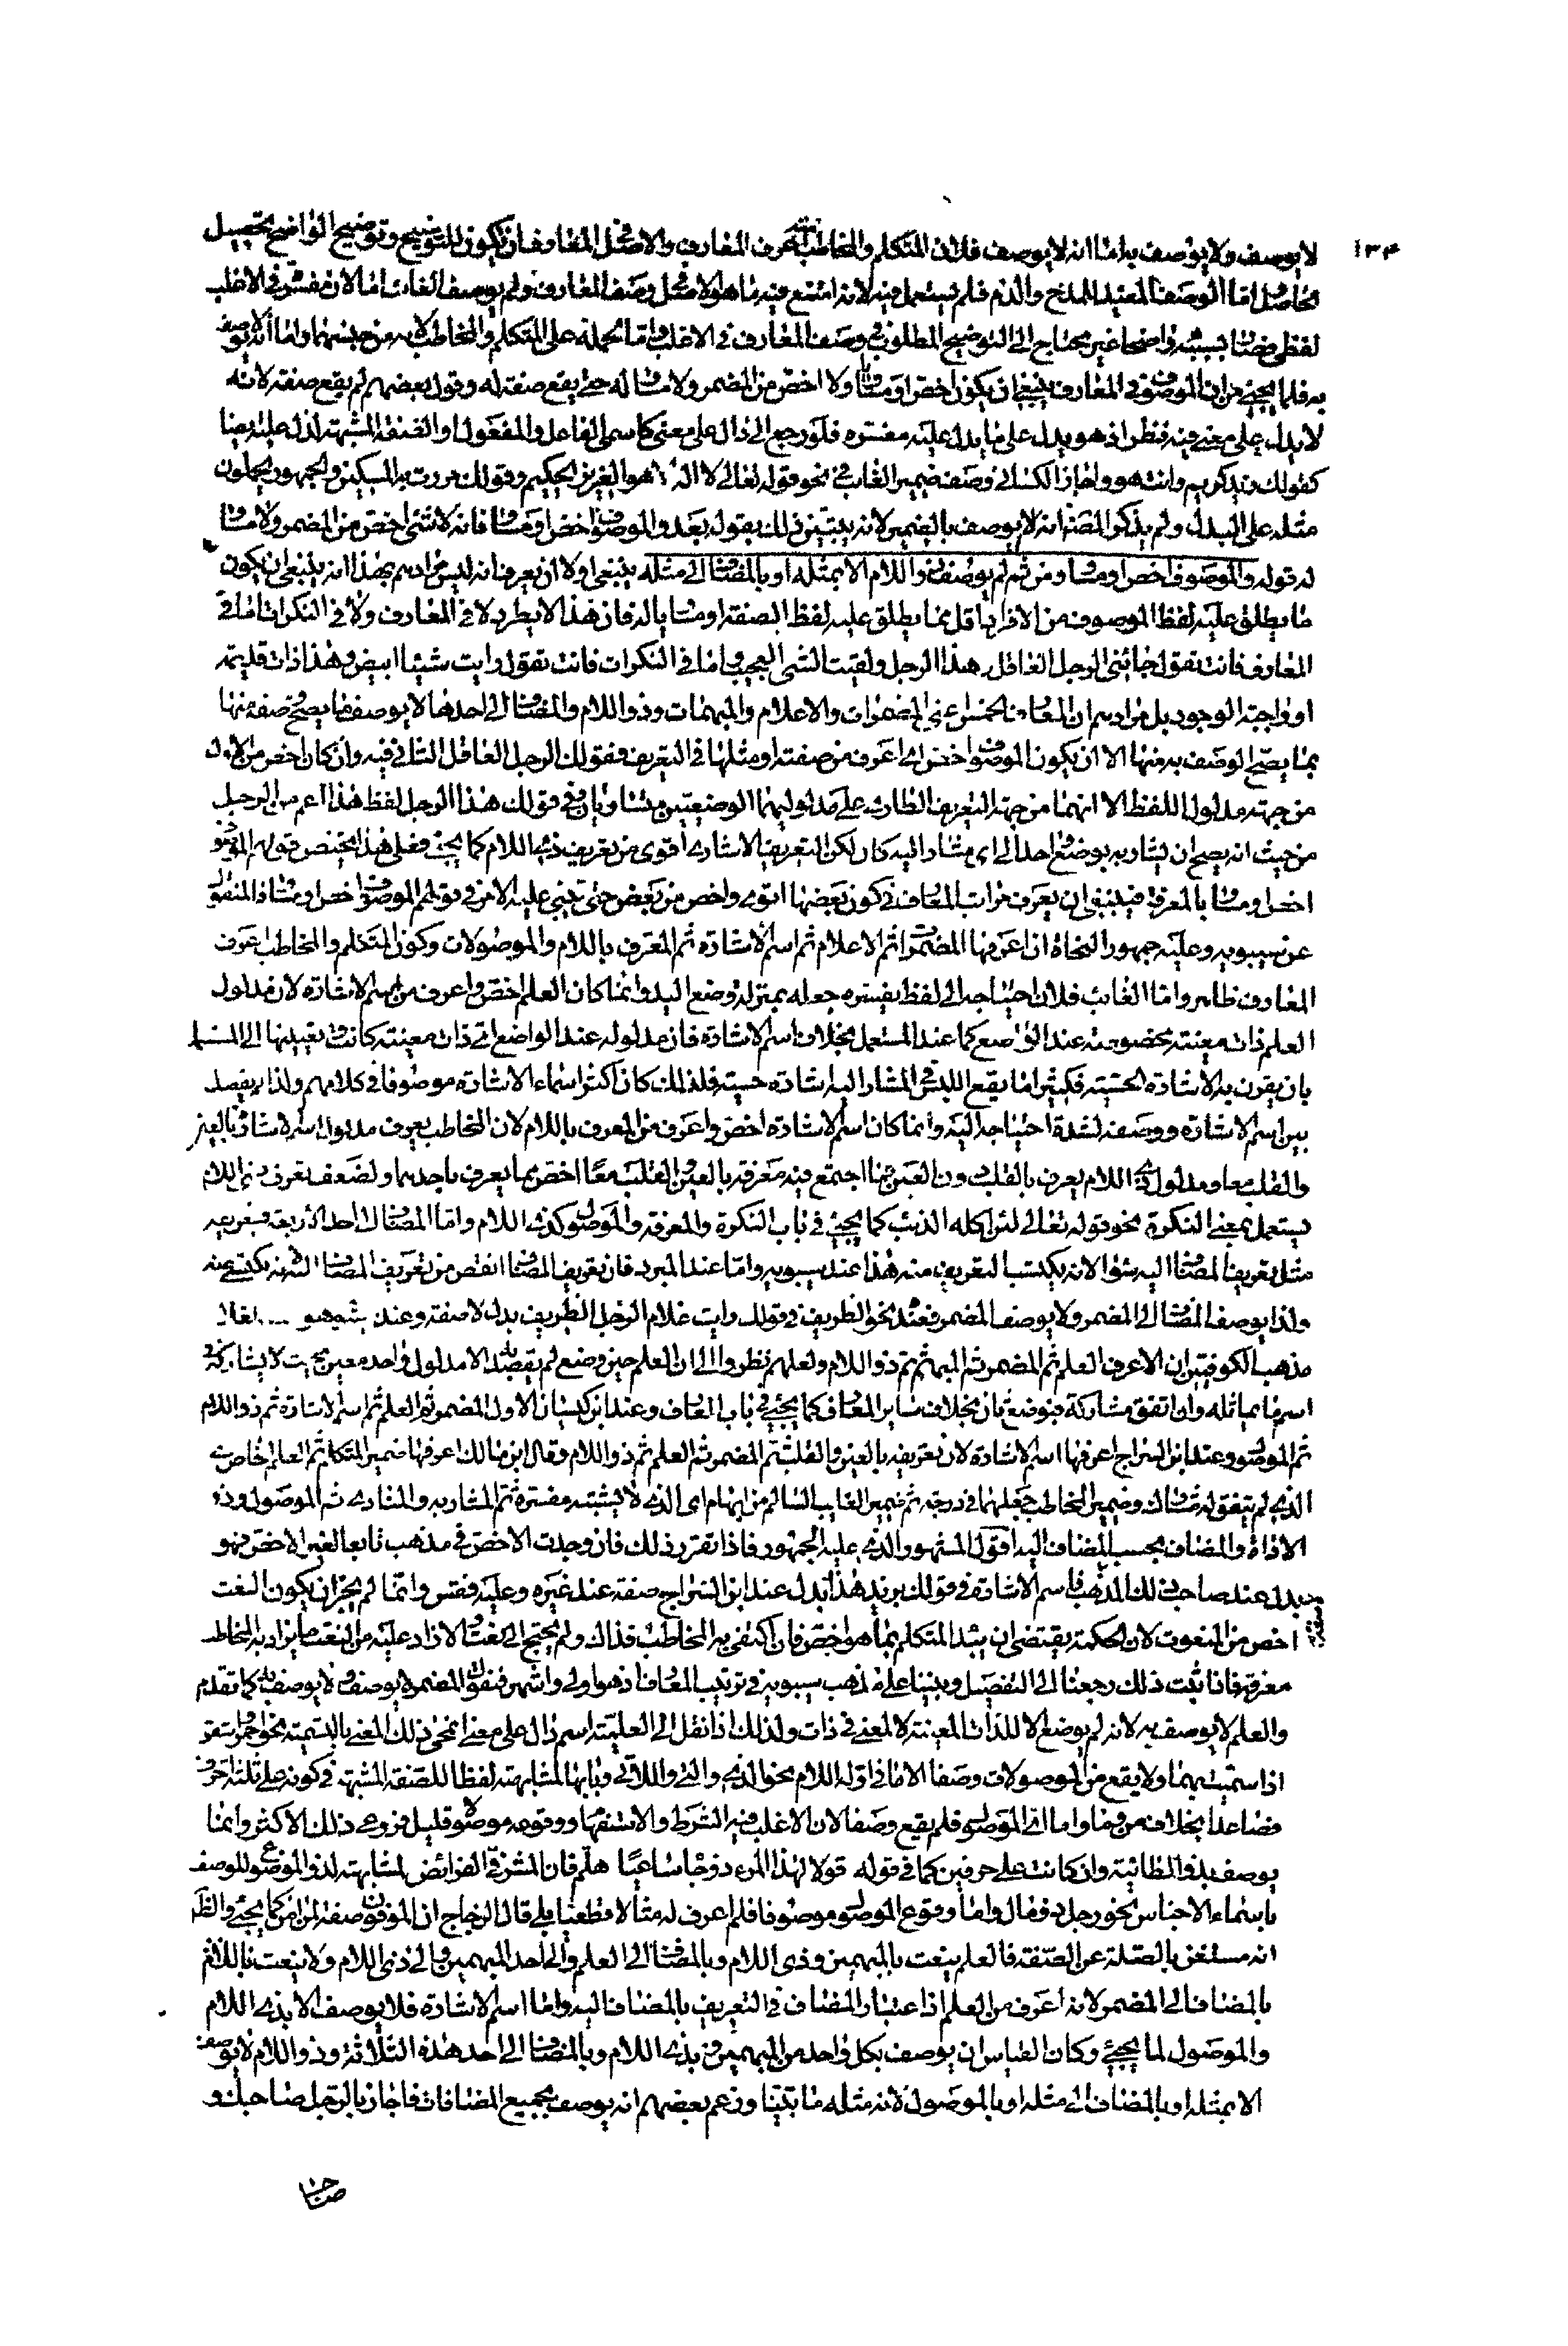 ١٣٤
لا يوصف ولا يوصف به اما انه لا يوصف فلان المتكلم والمخاطب منه اعرف المعارف والاصل في وصف المعارف ان يكون للتوضيح وتوضيح الواضح تحصيل
للحاصل اما الوصف المفيد للمدح والذم فلم يستعمل فيه لانه امتنع فيه ما هو الاصل في وصف المعارف ولم يوصف الغائب اما لان مفسره في الاغلب
لفظي فصار بسببه واضحا غير محتاج الى التوضيح المطلوب في وصف المعارف في الاغلب واما لحمله على المتكلم والمخاطب لانه من جنسهما واما انه لا يوصف
به فلما يجيء من ان الموصوف في المعارف ينبغي ان يكون اخص او مساويا ولا اخص من المضمر ولا مساوي له حتى يقع صفة له وقول بعضهم لم يقع صفة لانه
لا يدل على معنى فيه نظر اذ هو يدل على ما يدل عليه مفسره فلو رجع الى دال على معنى كاسمي الفاعل والمفعول او الصفة المشبهة لدل عليه ايضا
كقولك زيد كريم وانت هو واجاز الكسائي وصف ضمير الغائب في نحو قوله تعالى لا اله الا هو العزيز الحكيم وقولك مررت به المسكين والجمهور يحملون
مثله على البدل ولم يذكر المصنف انه لا يوصف بالضمير لانه يتبين ذلك بقوله بعد والموصوف اخص او مساو فانه لا شيء اخص من المضمر ولا مساو
له قوله والموصوف اخص او مساو ومن ثم لم يوصف ذو اللام الا بمثله او بالمضاف الى مثله ينبغي اولا ان يعرف انه ليس مرادهم بهذا انه ينبغي ان يكون
ما يطلق عليه لفظ الموصوف من الافراد اقل مما يطلق عليه لفظ الصفة او مساويا له فان هذا لا يطرد لا في المعارف ولا في النكرات اما في
المعارف فانت تقول جائني الرجل العاقل وهذا الرجل ولقيت الشيء العجيب واما في النكرات فانت تقول رايت شيئا ابيض وهذا ذات قديمة
او واجبة الوجود بل مرادهم ان المعارف الخمس اعني المضمرات والاعلام والمبهمات وذو اللام والمضاف الى احدها لا يوصف ما يصح وصفه منها
بما يصح الوصف به منها الا ان يكون الموصوف اخص اي اعرف من صفته او مثلها في التعريف فقولك الرجل العاقل الثاني فيه وان كان اخص من الاول
من جهة مدلول اللفظ الا انهما من جهة التعريف الطارئ على مدلوليهما الوضعيين متساويان وفي قولك هذا الرجل لفظ هذا اعم من الرجل
من حيث انه يصح ان يشار به بوضع احد الى اي مشار اليه كان لكن التعريف الاشاري اقوى من تعريف ذي اللام كما يجيء فعلى هذا يختص قولهم الموصوف
اخص او مساو بالمعرفة فينبغي ان يعرف مراتب المعارف في كون بعضها اقوى واخص من بعض حتى يبنى عليه الامر في قولهم الموصوف اخص او مساو المنقول
عن سيبويه وعليه جمهور النحاة ان اعرفها المضمرات ثم الاعلام ثم اسم الاشارة ثم المعرف باللام والموصولات وكون المتكلم والمخاطب اعرف
المعارف ظاهر واما الغائب فلان احتياجه الى لفظ يفسره جعله بمنزلة وضع اليد وانما كان العلم اخص واعرف من اسم الاشارة لان مدلول
العلم ذات معينة مخصوصة عند الواضع كما عند المستعمل بخلاف اسم الاشارة فان مدلوله عند الواضع اي ذات معينة كانت وتعيينها الى المستعمل
بان يقرن به الاشارة الحسية فكثيرا ما يقع اللبس في المشار اليه اشارة حسية فلذلك كان اكثر اسماء الاشارة موصوفا في كلامهم ولذا لم يفصل
بين اسم الاشارة ووصفه لشدة احتياجه اليه وانما كان اسم الاشارة اخص واعرف من المعرف باللام لان المخاطب يعرف مدلول اسم الاشارة بالعين
والقلب معا ومدلول ذي اللام يعرف بالقلب دون العين فما اجتمع فيه معرفة بالعين والقلب معا اخص مما يعرف باحدهما ولضعف تعريف ذي اللام
يستعمل بمعنى النكرة نحو قوله تعالى لئن اكله الذئب كما يجيء في باب النكرة والمعرفة والموصول كذي اللام واما المضاف الى احد الاربعة فتعريفه
مثل تعريف المضاف اليه سواء لانه يكتسب التعريف منه هذا عند سيبويه واما عند المبرد فان تعريف المضاف انقص من تعريف المضاف اليه لانه يكتسبه منه
ولذا يوصف المضاف الى المضمر ولا يوصف المضمر فعنده نحو الظريف في قولك رايت غلام الرجل الظريف بدل لا صفة وعند سيبويه
مذهب الكوفيين ان الاعرف العلم ثم المضمر ثم المبهم ثم ذو اللام ولعلهم نظروا الى ان العلم حين وضع لم يقصد به الا مدلول واحد معين بحيث لا يشاركه في
اسمه ما يماثله وان اتفق مشاركة فبوضع ثان بخلاف سائر المعارف كما يجيء في باب المعارف وعند ابن كيسان الاول المضمر ثم العلم ثم اسم الاشارة ثم ذو اللام
ثم الموصول وعند ابن السراج اعرفها اسم الاشارة لان تعريفه بالعين والقلب ثم المضمر ثم العلم ثم ذو اللام وقال ابن مالك اعرفها ضمير المتكلم ثم العلم الخاص اي
الذي لم يتفق له مشارك وضمير المخاطب جعلهما في درجة ثم ضمير الغايب السالم من ابهام اي الذي لا يشتبه مفسره ثم المشار به والمنادى ثم الموصول وذو
الاداة والمضاف بحسب المضاف اليه اقول المشهور والذي عليه الجمهور فاذا تقرر ذلك فان وجدت الاخص في مذهب تابعا لغير الاخص فهو
بدل عند صاحب ذلك المذهب فاسم الاشارة في قولك بزيد هذا بدل عند ابن السراج صفة عند غيره وعليه فقس وانما لم يجز ان يكون النعت
اخص من المنعوت لان الحكمة يقتضي ان يبدأ المتكلم بما هو اخص فان اكتفى به المخاطب فذاك ولم يحتج الى نعت والا زاد عليه من النعت ما يزداد به المخاطب
معرفة فاذا ثبت ذلك رجعنا الى التفصيل وبنينا على مذهب سيبويه في ترتيب المعارف اذ هو اولى واشهر فنقول المضمر لا يوصف ولا يوصف به كما تقدم
والعلم لا يوصف به لانه لم يوضع الا للذات المعينة لا لمعنى في ذات ولذلك اذا نقل الى العلمية اسم دال على معنى انمحى ذلك المعنى بالتسمية نحو احمر واشقر
اذا سميت بهما ولا يقع من الموصولات وصفا الا ما في اوله اللام نحو الذي والتي واللاتي وبابها لمشابهته لفظا للصفة المشبهة في كونه على ثلثة احرف
فصاعدا بخلاف من وما واما اي الموصولة فلم يقع وصفا لان الاغلب فيه الشرط والاستفهام ووقوعه موصولا قليل فروعي ذلك الاكثر وانما
يوصف بذو الطائية وان كانت على حرفين كما في قوله قولا لهذا المرء ذو جاء ساعيا هلم فان المشرفي الفرائض لمشابهته لذو الموضوع للوصف
باسماء الاجناس نحو رجل ذو مال واما وقوع الموصول موصوفا فلم اعرف له مثالا قطعيا بلى قال الزجاج ان الموفون صفة لمن امن كما يجيء والظاهر
انه مستغن بالصلة عن الصفة فالعلم ينعت بالمبهمين وذي اللام وبالمضاف الى العلم والى احد المبهمين والى ذي اللام ولا ينعت باللازم
بالمضاف الى المضمر لانه اعرف من العلم اذ اعتبار المضاف في التعريف بالمضاف اليه واما اسم الاشارة فلا يوصف الا بذي اللام
والموصول لما يجيء وكان القياس ان يوصف بكل واحد من المبهمين وبذي اللام وبالمضاف الى احد هذه الثلاثة وذو اللام لا يوصف
الا بمثله او بالمضاف الى مثله او بالموصول لانه مثله ما بينا وزعم بعضهم انه يوصف بجميع المضافات فاجاز بالرجل صاحبك و
صاحب